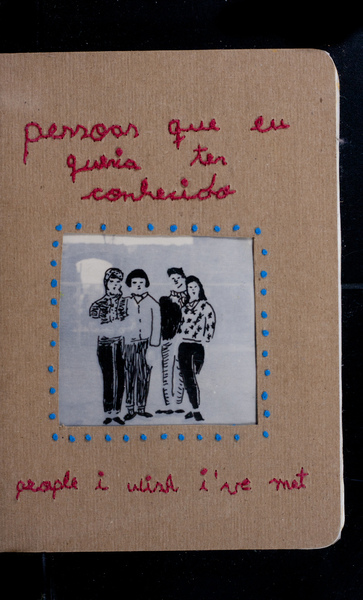 pessoas que eu
queria ter
conhecido
people i wish i've met